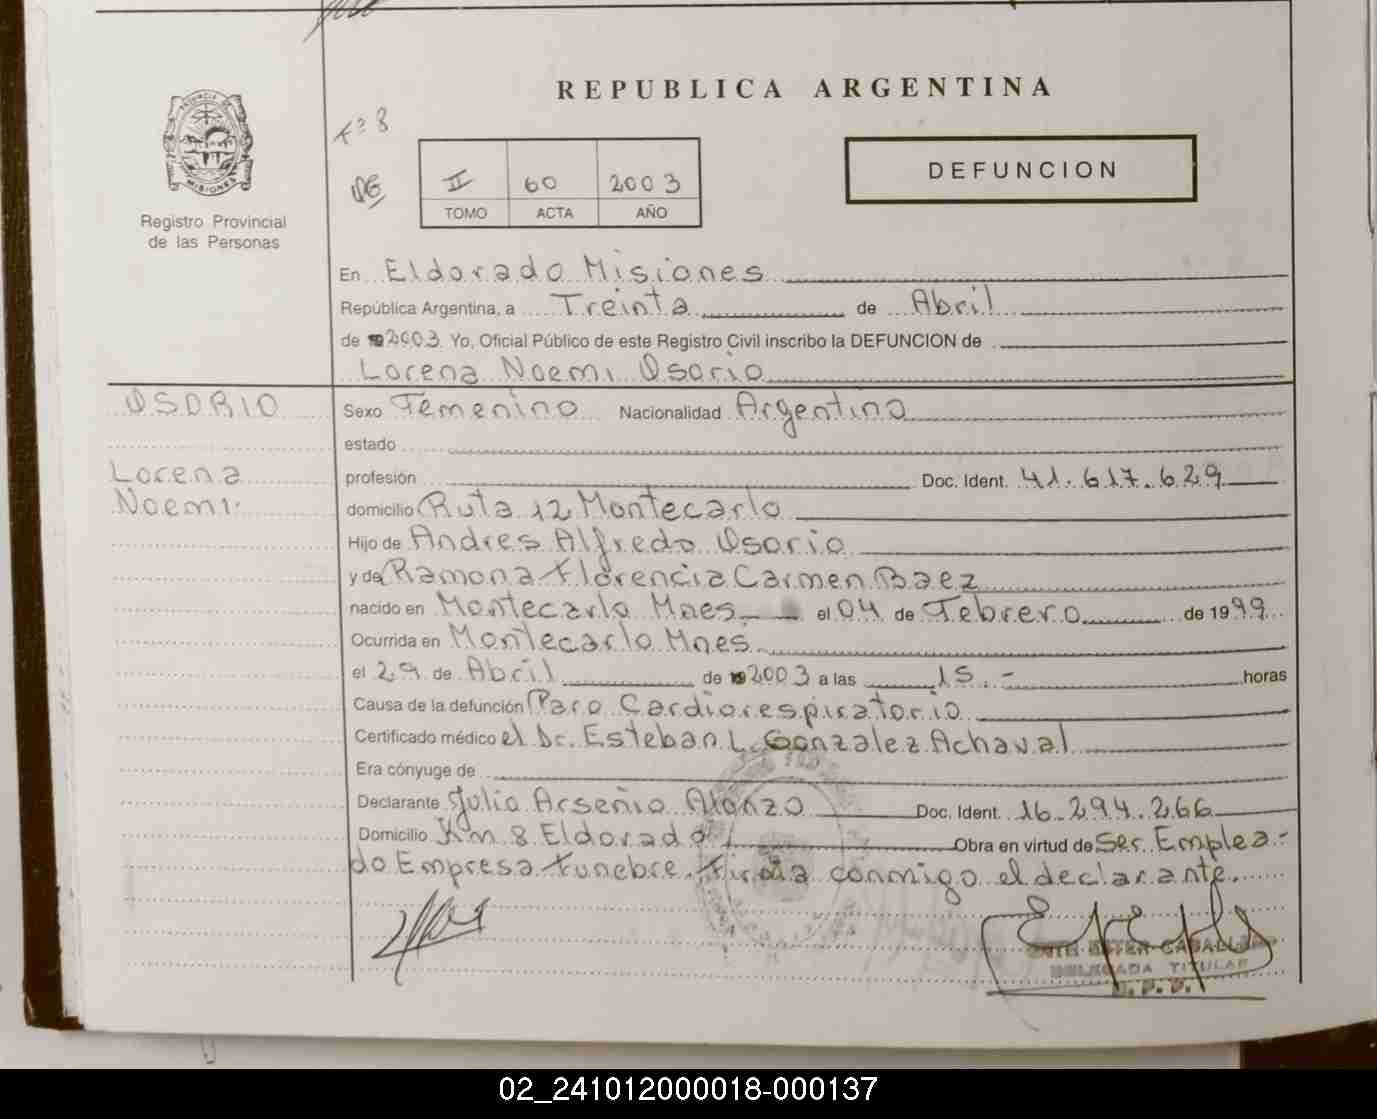 REPUBLICA ARGENTINA
PROVINCIA DE MISIONES
Registro Provincial
de las Personas
Fº 8
DE
II 60 2003
TOMO ACTA AÑO
DEFUNCION
En Eldorado Misiones
República Argentina, a Treinta de Abril
de 2003 Yo, Oficial Público de este Registro Civil inscribo la DEFUNCION de
Lorena Noemi Osorio
OSORIO
Lorena
Noemi.
Sexo Femenino Nacionalidad Argentina
estado
profesión Doc. Ident. 41.617.629
domicilio Ruta 12 Montecarlo
Hijo de Andres Alfredo Osorio
y de Ramona Florencia Carmen Baez
nacido en Montecarlo Mnes el 04 de Febrero de 1999
Ocurrida en Montecarlo Mnes.
el 29 de Abril de 2003 a las 15.- horas
Causa de la defunción Paro Cardiorespiratorio
Certificado médico el Dr. Esteban L. Gonzalez Achaval
Era cónyuge de
Declarante Julio Arsenio Alonzo Doc. Ident. 16.294.266
Domicilio Km 8 Eldorado Obra en virtud de Ser Emplea-
do Empresa Funebre. Firma conmigo el declarante.
ESTER CABALLERO
DELEGADA TITULAR
R. P. P.
02_241012000018-000137